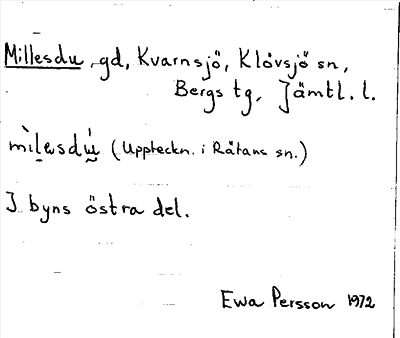 Millesdu gd, Kvarnsjö, Klövsjö sn,
Bergs tg, Jämtl. l.
(Uppteckn. i Råtans sn.)
I byns östra del.
Ewa Persson 1972